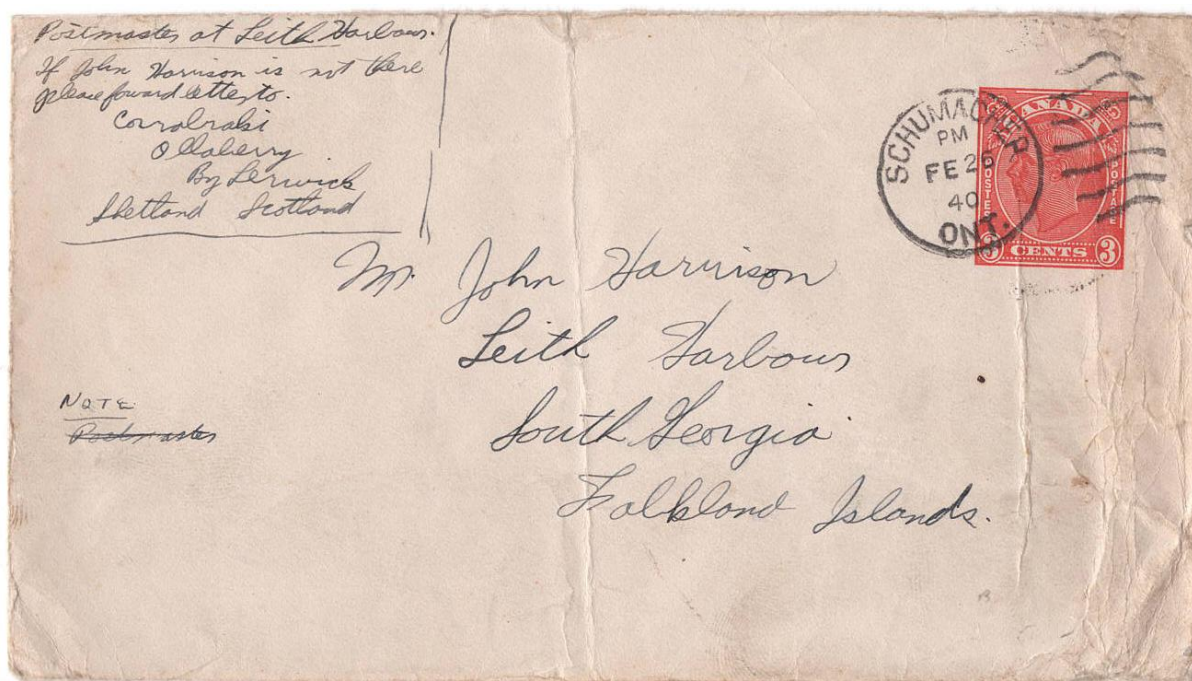 Postmaster at Leith Harbour.
If John Harrison is not there
please foward letter to.
Ollaberry
By Lerwick
Shetland Scotland
SCHUMACHER
PM
FE 26
40
ONT.
CANADA
POSTES
POSTAGE
3 CENTS 3
Mr. John Harrison
Leith Harbour
South Georgia
Falkland Islands.
NOTE
Postmaster